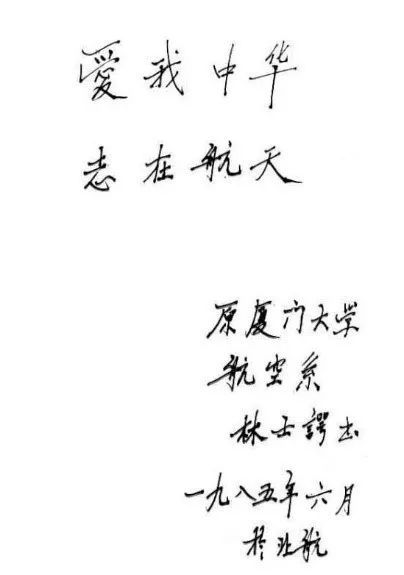 愛我中华
志在航天
原厦门大学
航空系
林士諤书
一九八五年六月
於北航